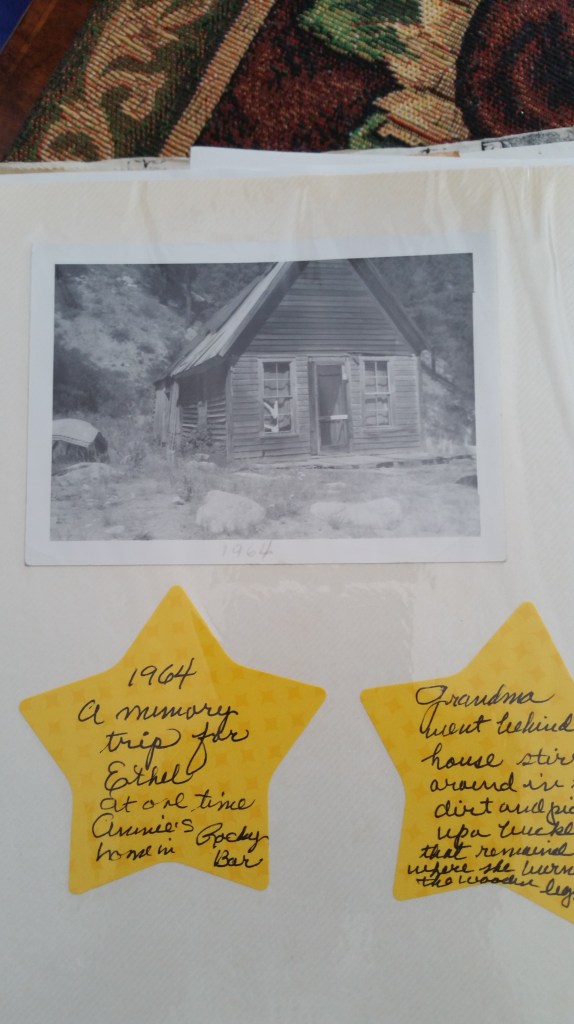 1964
1964
A memory
trip for
Ethel
at one time
Annie's
home in Rocky
Bar
Grandma
went behind
house stir
around in
dirt and pic
up a buckle
that remained
where she burn
the wooden leg